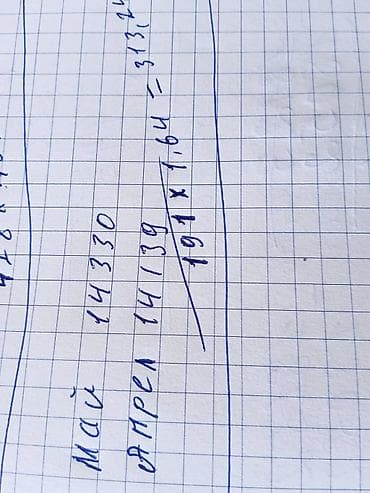 Май 14330
Апрел 14139
191 x 1.64 = 313,24